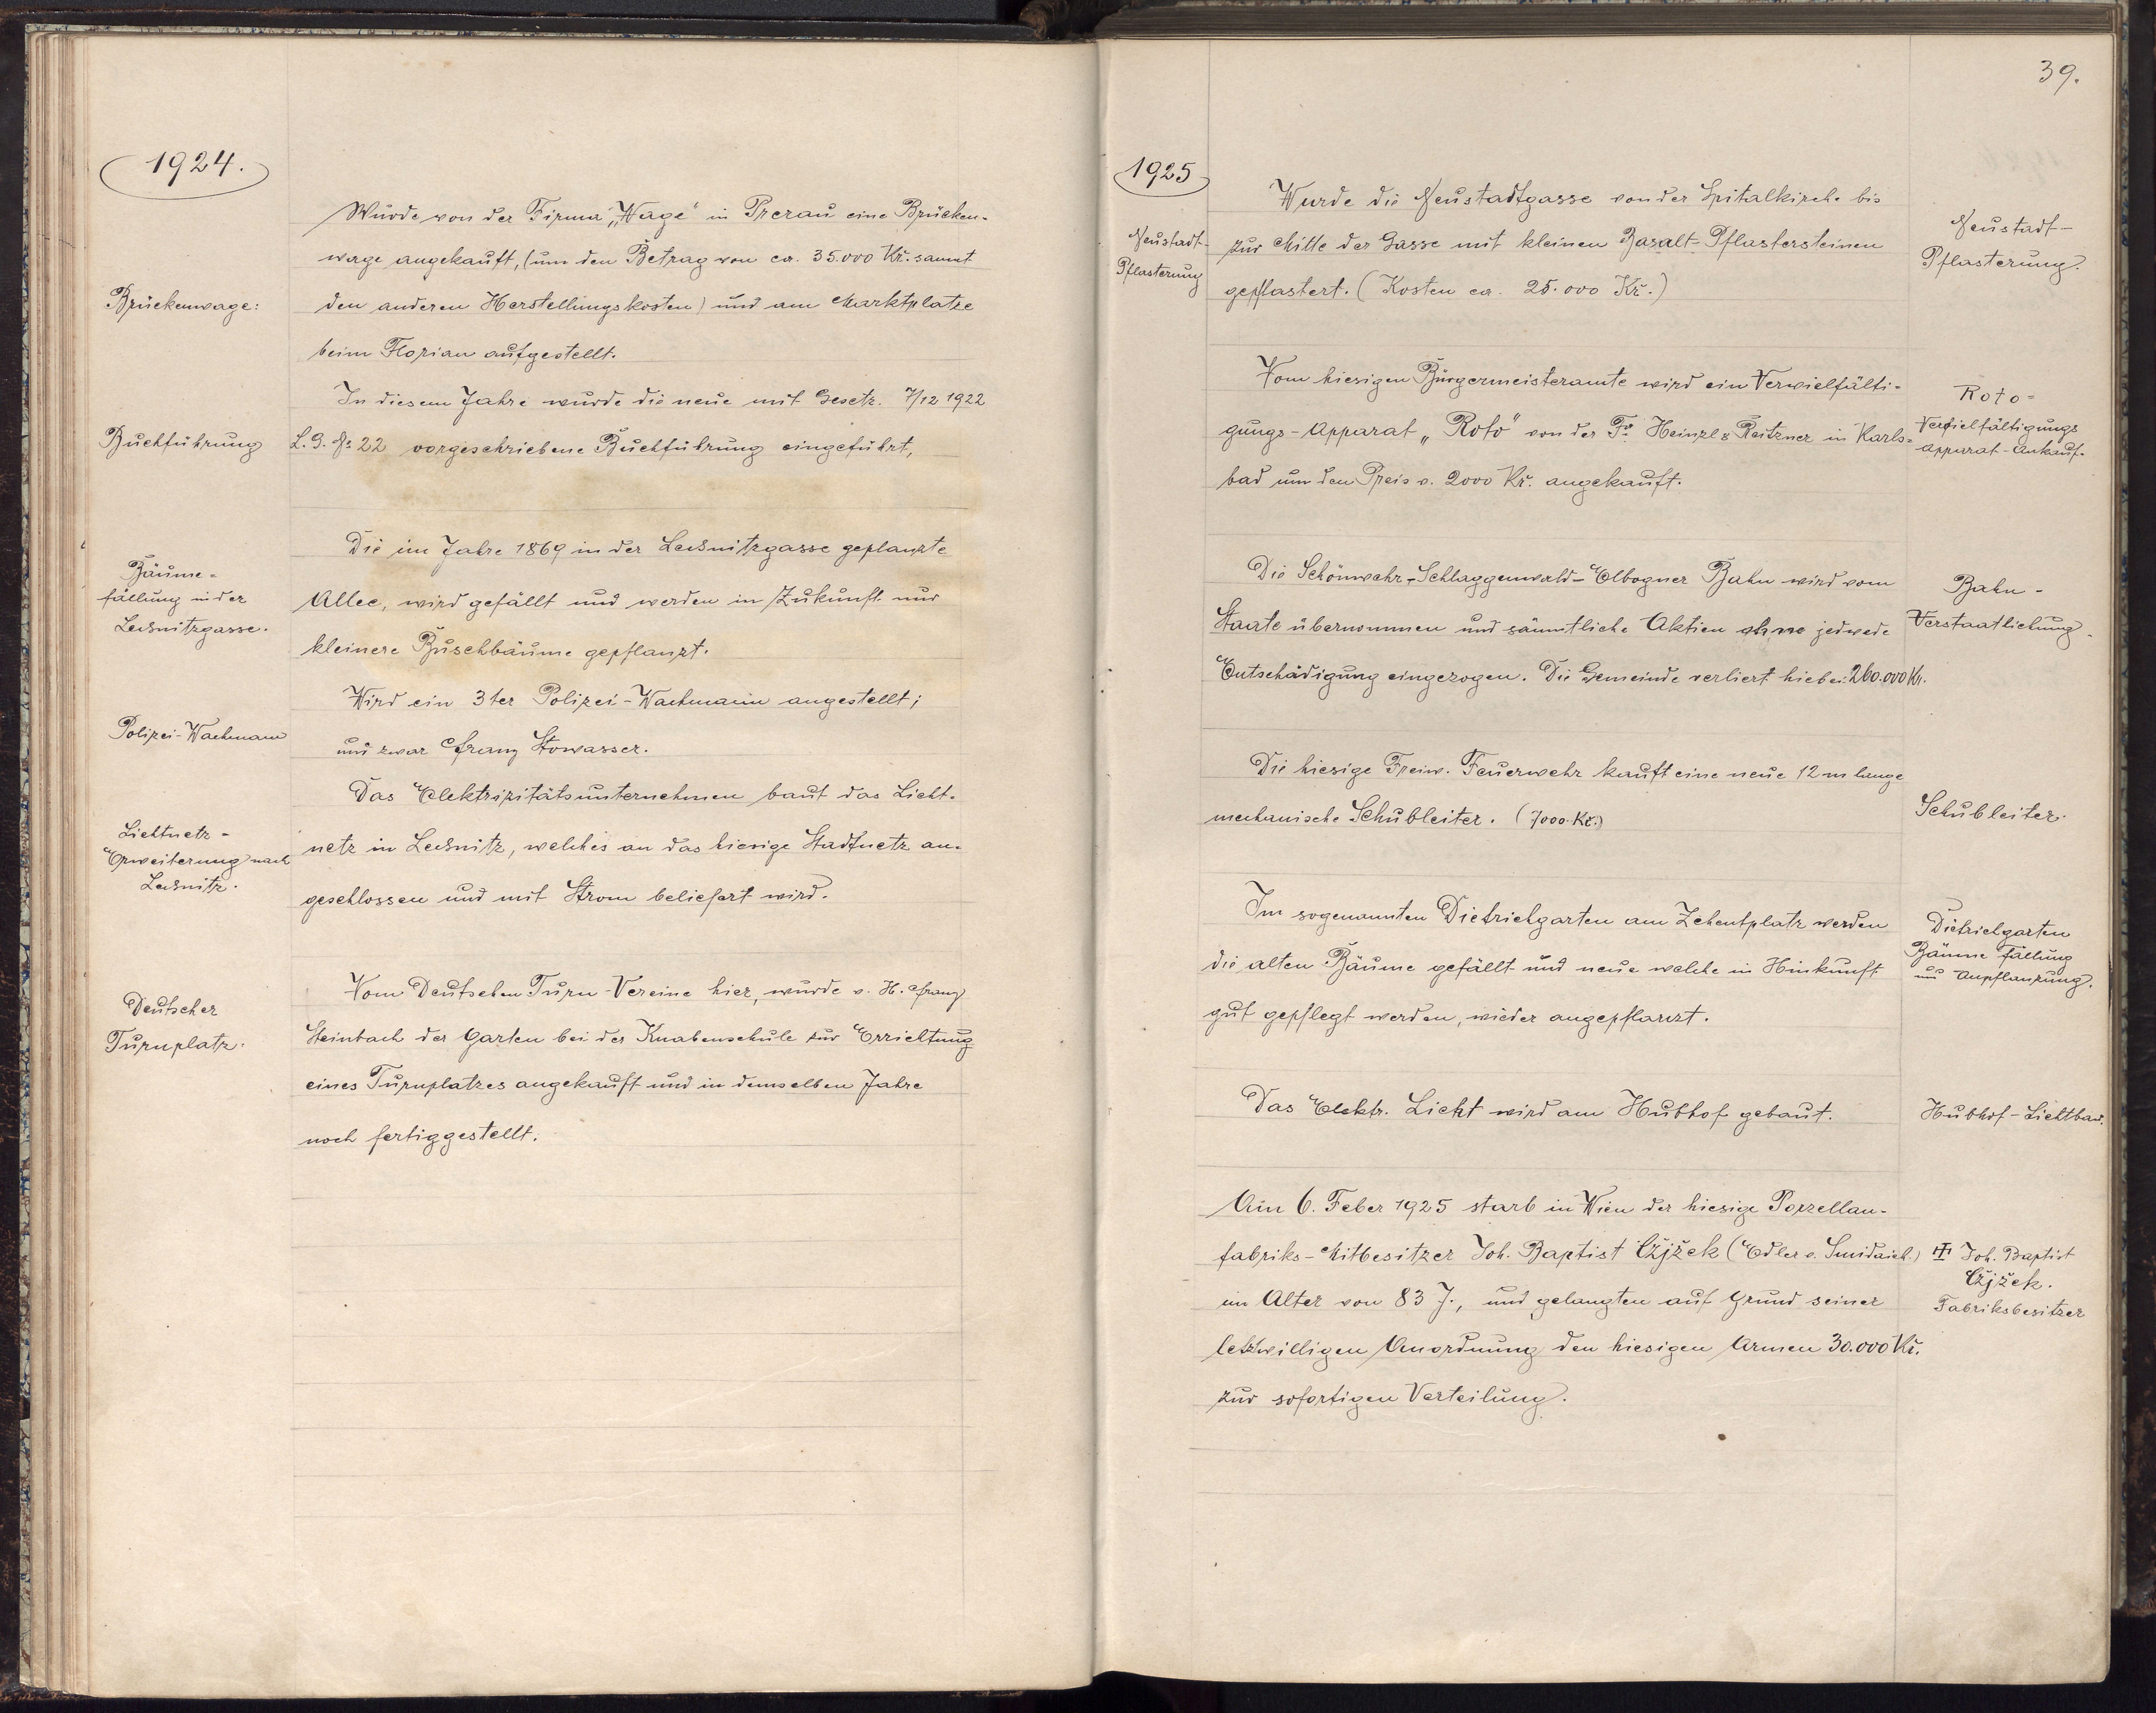 1924.
Wurde von der Firma „Wage“ in Prerau eine Brücken-
wage angekauft, (um den Betrag von ca. 35.000 Kč. samt
Brückenwage:
den anderen Herstellungskosten) und am Marktplatze
beim Florian aufgestellt.
In diesem Jahre wurde die neue mit Gesetz. 7/12 1922
Buchführung
L. G. No 22 vorgeschriebene Buchführung eingeführt,
Bäume-
fällung in der
Lessnitzgasse.
Die im Jahre 1869 in der Lessnitzgasse geplanzte
Allee, wird gefällt und werden in Zukunft nur
kleinere Buschbäume gepflanzt.
Wird ein 3ter Polizei-Wachmann angestellt;
Polizei-Wachmann
und zwar Franz Stowasser.
Das Elektrizitätsunternehmen baut das Licht-
Lichtnetz-
Erweiterung nach
Lessnitz.
netz in Lessnitz, welches an das hiesige Stadtnetz an-
geschlossen und mit Strom beliefert wird.
Deutscher
Turnplatz.
Vom Deutschen Turn-Vereine hier, wurde v. H. Franz
Steinbach der Garten bei der Knabenschule zur Errichtung
eines Turnplatzes angekauft und in demselben Jahre
noch fertiggestellt.
39.
1925
Wurde die Neustadtgasse von der Spitalkirche bis
Neustadt-
Pflasterung
zur Mitte der Gasse mit kleinen Basalt-Pflastersteinen
gepflastert. (Kosten ca. 25.000 Kč.)
Neustadt-
Pflasterung.
Vom hiesigen Bürgermeisteramte wird ein Vervielfälti-
gungs-Apparat „Roto“ von der Fa Heinzl & Reitzner in Karls-
bad um den Preis v. 2000 Kč. angekauft.
Roto-
Vervielfältigungs
Apparat-Ankauf.
Die Schönwehr-Schlaggenwald-Elbogner Bahn wird vom
Staate übernommen und sämmtliche Aktien ohne jedwede
Entschädigung eingezogen. Die Gemeinde verliert hiebei 260.000 Kr.
Bahn-
Verstaatlichung.
Die hiesige Freiw. Feuerwehr kauft eine neue 12 m lange
mechanische Schubleiter. (7000 Kč.)
Schubleiter.
Im sogenannten Dietrichgarten am Zehentplatz werden
die alten Bäume gefällt und neue welche in Hinkunft
gut gepflegt werden, wieder angepflanzt.
Dietrichgarten
Bäume Fällung
und Anpflanzung.
Das Elektr. Licht wird am Hubhof gebaut.
Hubhof-Lichtbau.
Am 6. Feber 1925 starb in Wien der hiesige Porzellan-
fabriks-Mitbesitzer Joh. Baptist Cžjžek (Edler v. Smidaich)
im Alter von 83 J., und gelangten auf Grund seiner
letzwilligen Anordnung den hiesigen Armen 30.000 Kč.
zur sofortigen Verteilung.
Joh. Baptist
Cžjžek.
Fabriksbesitzer